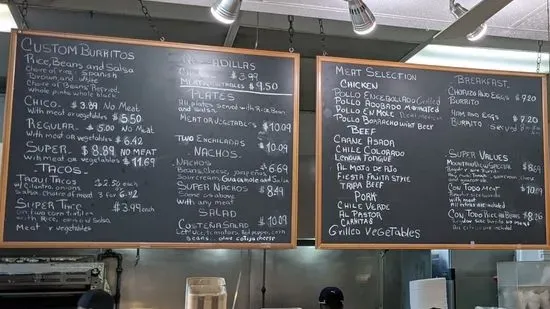 Custom Burritos
Rice, Beans and Salsa
Choice of rice: Spanish
Brown, and white
Choice of Beans: Refried,
Whole pinto whole black
Chico - $3.89 No Meat
With meat or vegetables $5.50
Regular - $5.00 No Meat
With meat or vegetables $6.42
Super - $8.89 No meat
With meat or vegetables $11.69
-Tacos-
Taqui Tacos $2.50 each
w/cilantro, onions
Salsa, Choice of meat 3 for
Super Taco $3.99 each
On two corn tortillas
with Rice, Beans, Salsa
Meat or vegetables
$3.99
Meat/vegetables $9.50
Plates
All plates served with Rice Beans
and Salad
Meat or vegetables $10.09
Two Enchiladas $10.09
Nachos
Nachos $6.69
Beans, Cheese, jalapeños
Sour cream, Guacamole and Salsa
Super Nachos $8.49
Same as above
with any meat
Salad
Costeña Salad $10.09
Lettuce, tomatoes, Red pepper, corn
beans, olive, cotija cheese
Meat Selection
Chicken
Pollo Encebollado Grilled
Pollo Adobado Marinated
Pollo en Mole
Pollo Borracho With Beer
Beef
Carne Asada
Chile Colorado
Lengua Tongue
Al Mato de Rio
Fiesta Fajita Style
Tripa Beef
Pork
Chile Verde
Al Pastor
Carnitas
Grilled Vegetables
Breakfast
Chorizo and Eggs $7.20
Burrito
Ham and Eggs $7.20
Burrito
Super Values
Special $8.69
Regular size Burrito
Con Todo Meat $10.09
Regular size Burrito
with meat
Con Todo Rice and Beans $8.26
Regular size burrito no meat